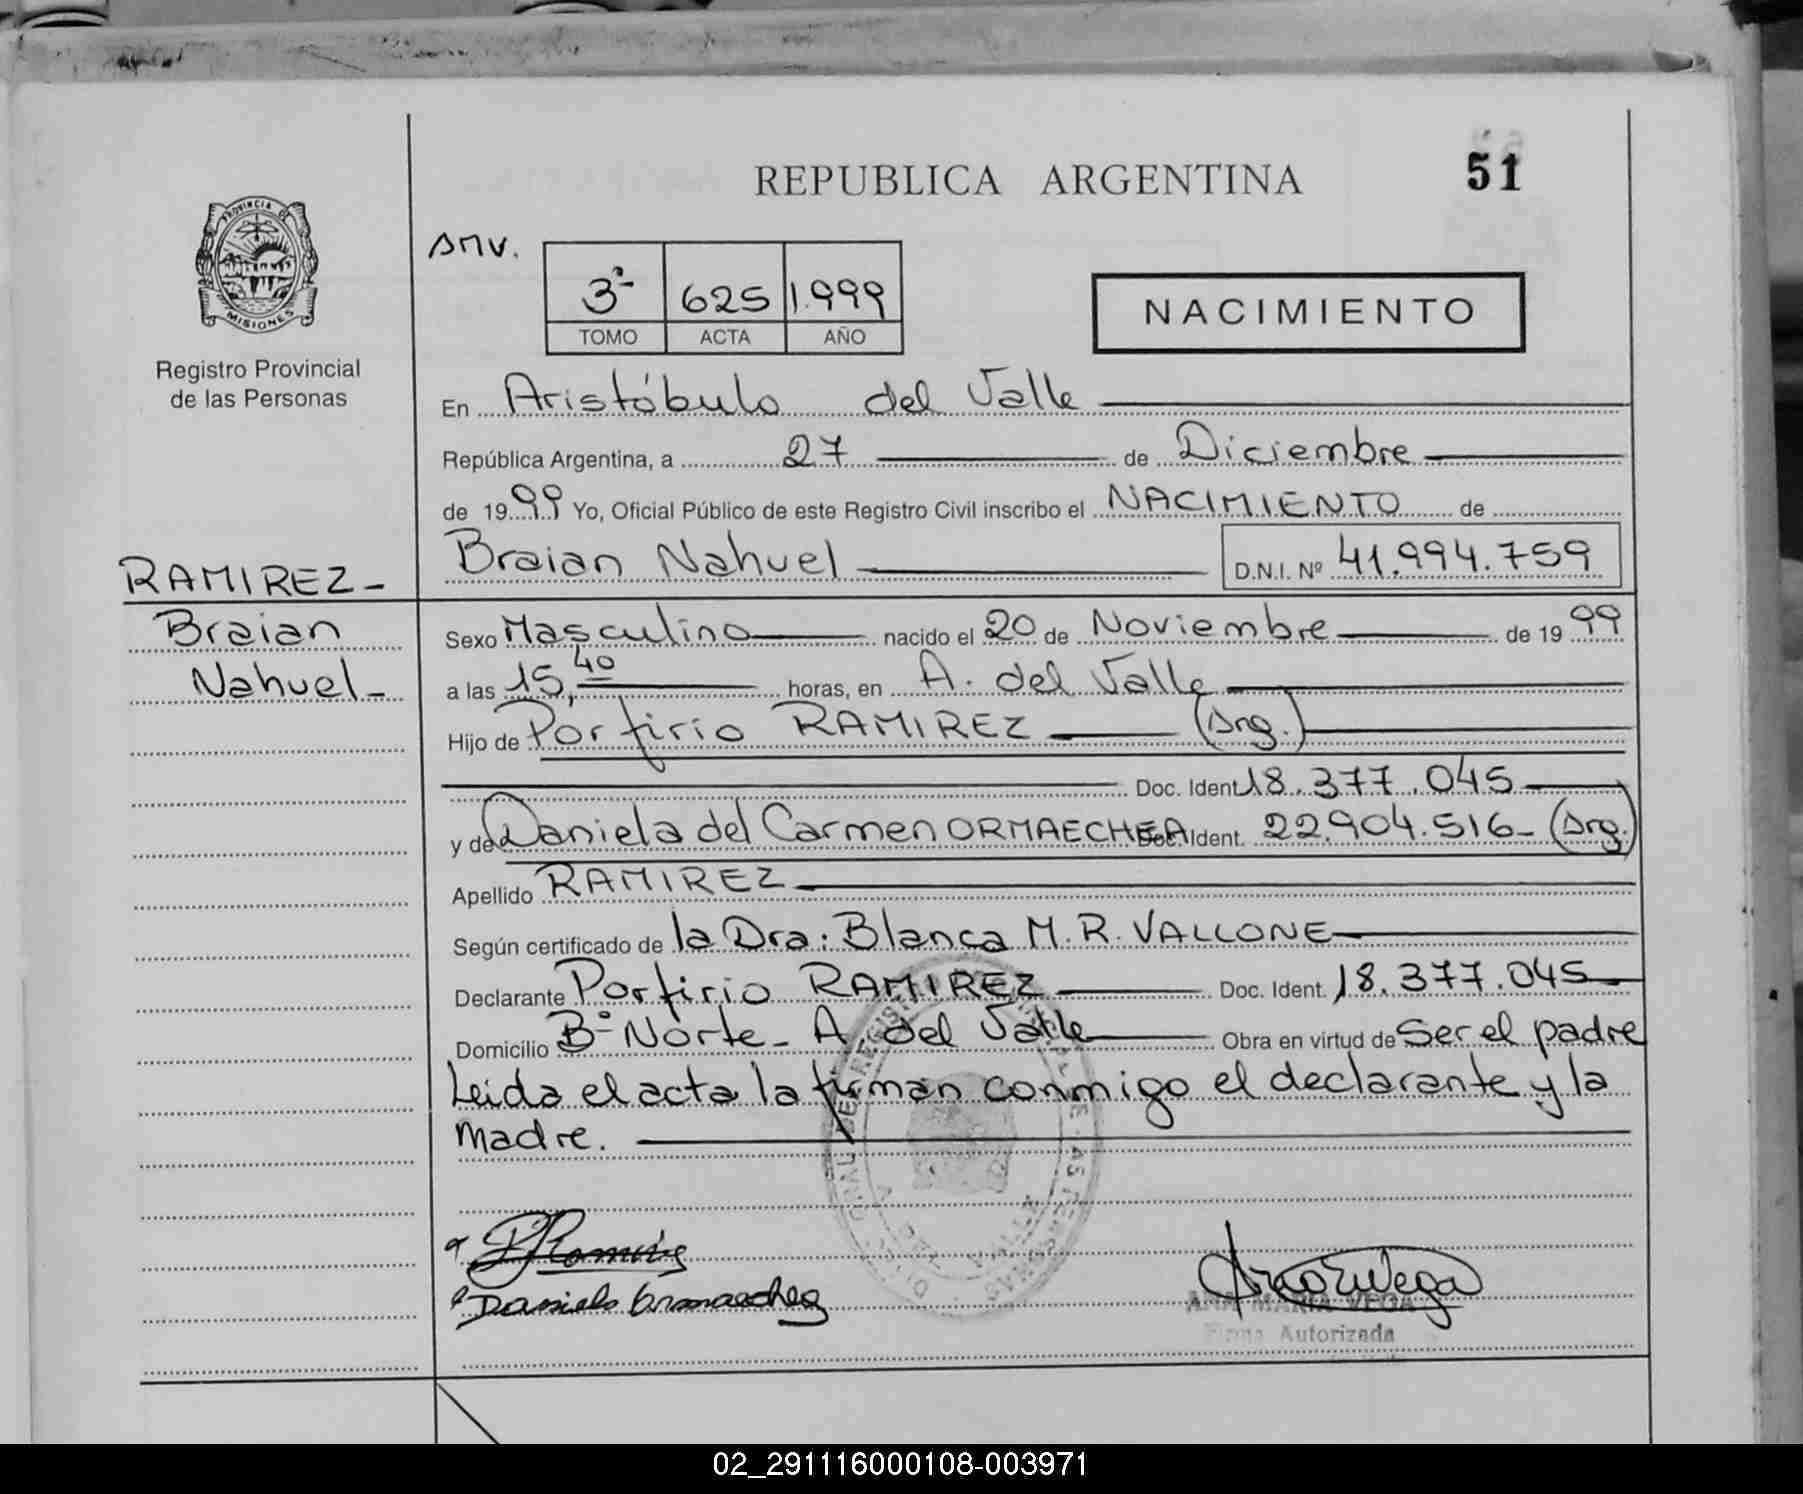 REPUBLICA ARGENTINA
51
PROVINCIA DE
MISIONES
Registro Provincial
de las Personas
AMV.
3º 625 1.999
TOMO ACTA AÑO
NACIMIENTO
En Aristóbulo del Valle
República Argentina, a 27 de Diciembre
de 1999 Yo, Oficial Público de este Registro Civil inscribo el NACIMIENTO de
Braian Nahuel D.N.I. Nº 41.994.759
RAMIREZ-
Braian
Nahuel-
Sexo Masculino nacido el 20 de Noviembre de 1999
a las 15,40 horas, en A. del Valle
Hijo de Porfirio RAMIREZ (Arg.)
Doc. Ident. 18.377.045
y de Daniela del Carmen ORMAECHEA Doc. Ident. 22.904.516- (Arg.)
Apellido RAMIREZ
Según certificado de la Dra. Blanca M.R. VALLONE
Declarante Porfirio RAMIREZ Doc. Ident. 18.377.045
Domicilio Bº Norte- A del Valle Obra en virtud de Ser el padre
Leida el acta la firman conmigo el declarante y la
madre.
P Ramirez
Daniela Ormaechea
Ana M Vega
ANA MARIA VEGA
Firma Autorizada
02_291116000108-003971